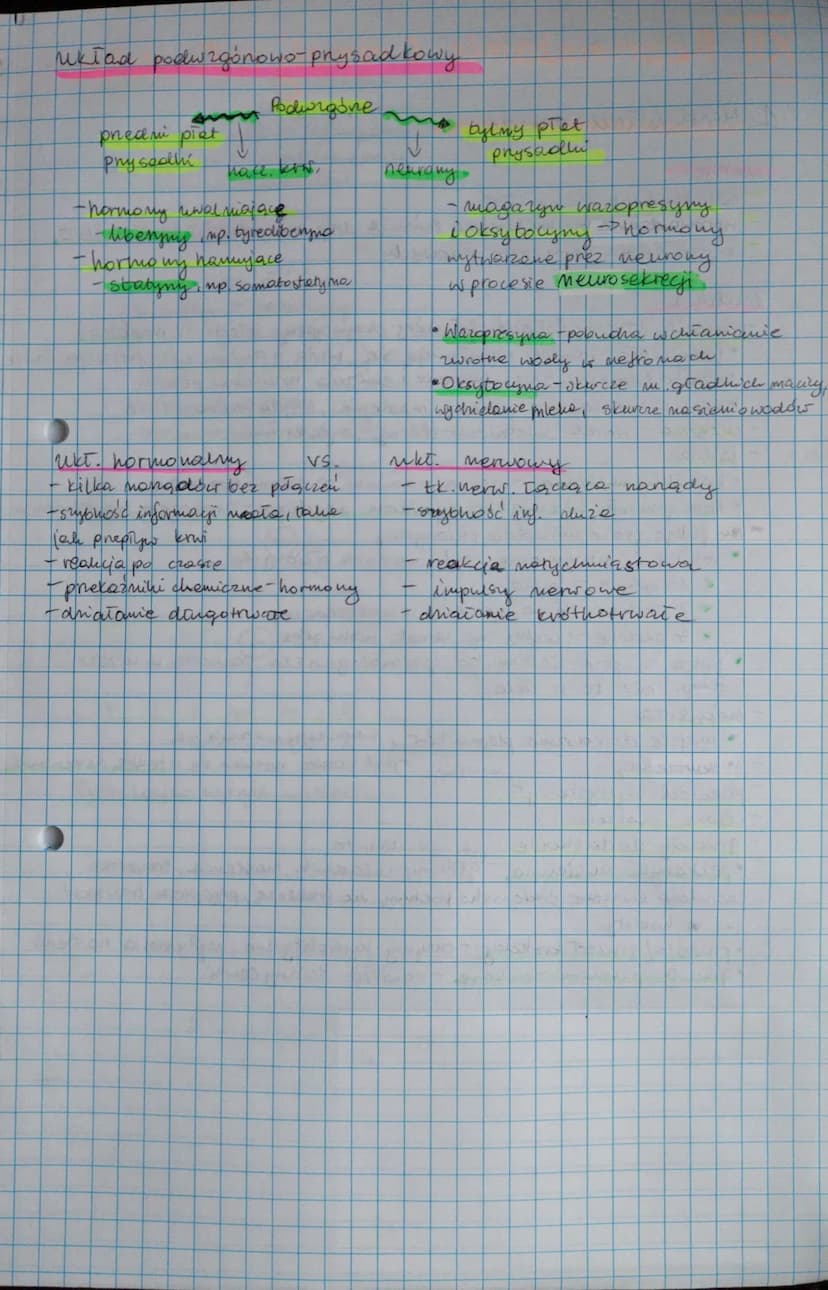 układ podwzgórzowo-przysadkowy
Podwzgórze
przedni płat
przysadki
nacz. krw.
neurony
tylny płat
przysadki
- hormony uwalniające
- liberyny, np. tyreoliberyna
- hormony hamujące
- statyny, np. somatostatyna
- magazyn wazopresyny
i oksytocyny → hormony
wytwarzane przez neurony
w procesie neurosekrecji
• Wazopresyna - pobudza wchłanianie
zwrotne wody w nefronach
• Oksytocyna - skurcze m. gładkich macicy,
wydzielanie mleka, skurcze nasieniowodów
ukł. hormonalny vs. ukł. nerwowy
- kilka narządów bez połączeń
- szybkość informacji mała, taka
jak przepływ krwi
- reakcja po czasie
- przekaźniki chemiczne - hormony
- działanie długotrwałe
- tk. nerw. łącząca narządy
- szybkość inf. duża
- reakcja natychmiastowa
- impulsy nerwowe
- działanie krótkotrwałe